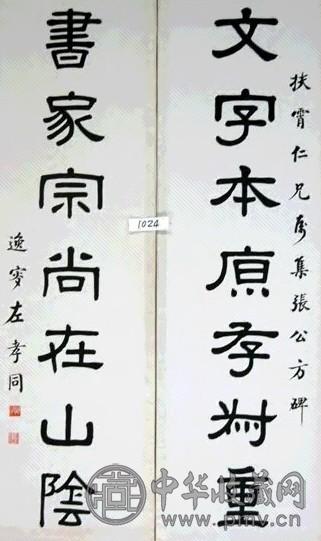 扶霄仁兄屬集張公方碑
文字本原存叔重
書家宗尚在山陰
逸叜左孝同
1024
中华收藏网
www.pmv.cn